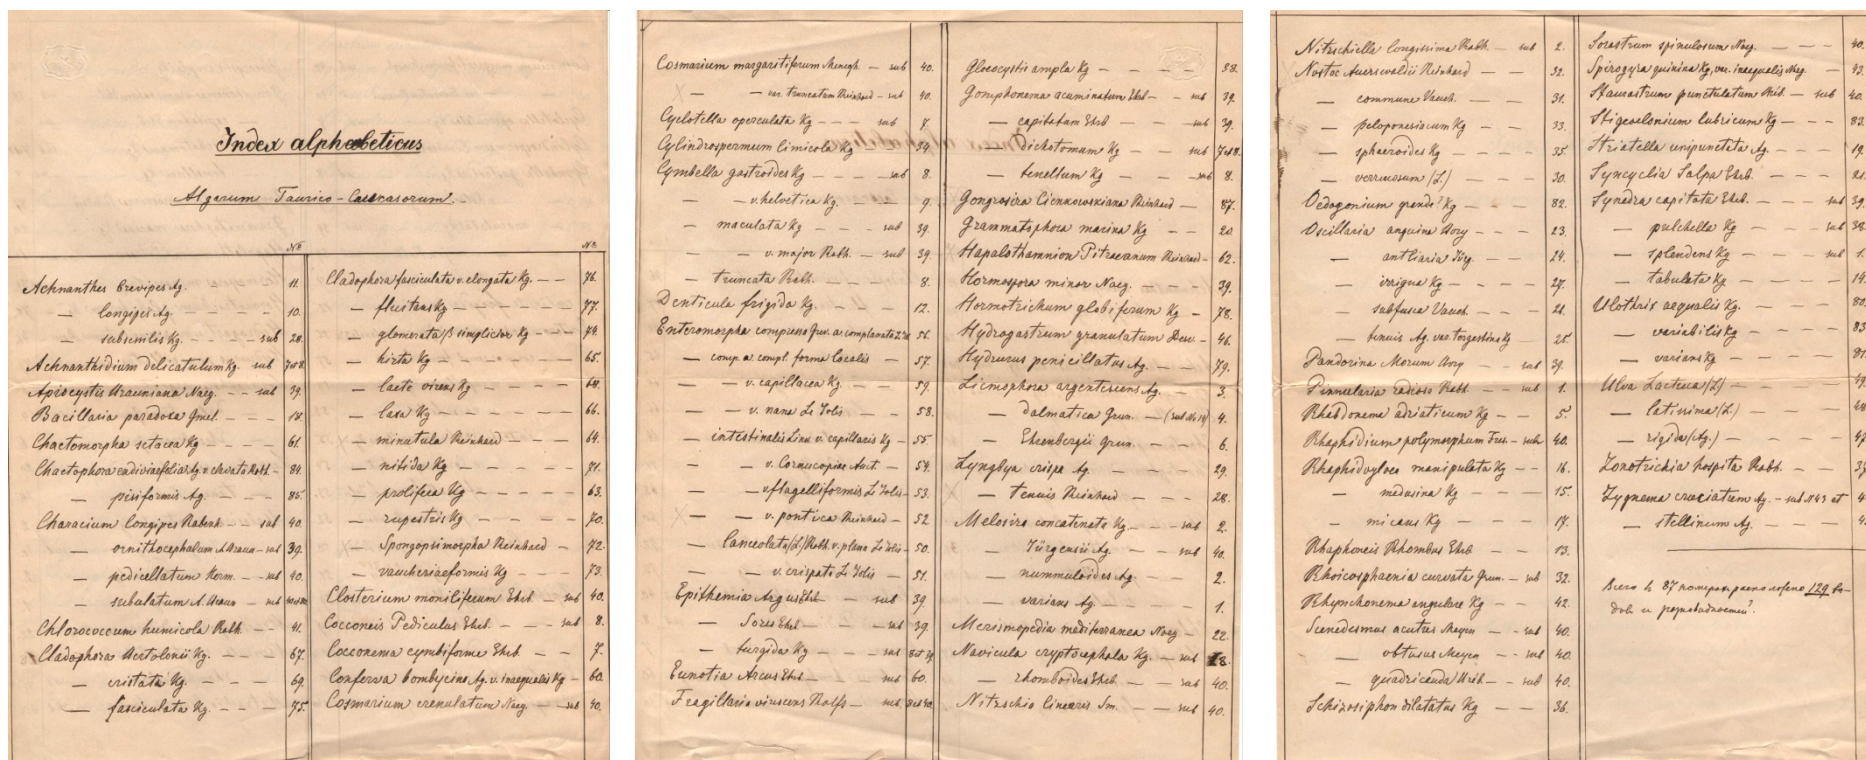 Index alphabeticus
Algarum Taurico-Caucasorum.
№
Achnanthes brevipes Ag. 11.
— longipes Ag. — — — 10.
— subsessilis Kg. — — sub 20.
Achnanthidium delicatulum Kg. sub 7 et 8.
Apiocystis Brauniana Naeg. — — sub 39.
Bacillaria paradoxa Gmel. — — 18.
Chaetomorpha setacea Kg — — — 61.
Chaetophora endiviaefolia Ag. v. clavata — 84.
— pisiformis Ag. — — — 85.
Characium longipes Rabenh. — — sub 40.
— ornithocephalum A. Braun — sub 39.
— pedicellatum Herm. — sub 40.
— subulatum A. Braun — sub
Chlorococcum humicola Rabh. — — 41.
Cladophora Bertolonii Kg. — — — 67.
— cristata Kg. — — — 69.
— fasciculata Kg. — — — 75.
№
Cladophora fasciculata v. elongata Kg. — 76.
— fluitans Kg — — — 77.
— glomerata β simplicior Kg — 74.
— hirta Kg — — — — 65.
— laete virens Kg — — — 68.
— laxa Kg — — — — 66.
— minutula Reinhard — — 64.
— nitida Kg — — — — 71.
— prolifera Kg — — — — 63.
— rupestris Kg — — — — 70.
— Spongopsimorpha Reinhard — 72.
— vaucheriaeformis Kg — — 73.
Closterium moniliferum Ehrb. — sub 40.
Cocconeis Pediculus Ehrb. — — sub 8.
Cocconema cymbiforme Ehrb. — — 7.
Conferva bombycina Ag. v. inaequalis Kg — 60.
Cosmarium crenulatum Naeg. — sub 40.
Cosmarium margaritiferum Menegh — sub 40.
— — var. truncatum Reinhard — sub 40.
Cyclotella operculata Kg — — — sub 7.
Cylindrospermum limicola Kg — — 34.
Cymbella gastroides Kg — — — — sub 8.
— — v. helvetica Kg. — — — 9.
— maculata Kg — — — sub 39.
— — v. major Rabh. — sub 39.
— truncata Rabh. — — — 8.
Denticula frigida Kg. — — — 12.
Enteromorpha compressa Grev. a. complanata 56.
— comp. a. compl. forma localis — 57.
— — v. capillacea Kg. — — 59.
— — v. nana Le Jolis — — 58.
— intestinalis Link v. capillaris Kg — 55.
— — v. Cornucopiae Auct. — 54.
— — v. flagelliformis Le Jolis — 53.
— — v. pontica Reinhard — 52.
— lanceolata (L) Rabh. v. plana Le Jolis — 50.
— — v. crispata Le Jolis — 51.
Epithemia Argus Ehrb — — sub 39.
— Sorex Ehrb — — — sub 39.
— turgida Kg — — — sub 8 et 39.
Eunotia Arcus Ehrb — — — sub 60.
Fragillaria virescens Ralfs — sub 8 et 40.
Gloeocystis ampla Kg — — — — 38.
Gomphonema acuminatum Ehrb — — sub 39.
— capitatum Ehrb — — — sub 39.
— dichotomum Kg — — sub 7 et 8.
— tenellum Kg — — — sub 8.
Gongrosira Cienkowskiana Reinhard — — 87.
Grammatophora marina Kg — — 20.
Hapalothamnion Pitraeanum Reinhard — 62.
Hormospora minor Naeg. — — — 39.
Hormotrichum globiferum Kg — 78.
Hydrogastrum granulatum Desv. — 46.
Hydrurus penicillatus Ag. — — 79.
Licmophora argentescens Ag. — — 3.
— dalmatica Grun. — (sub No 19) 4.
— Ehrenbergii Grun. — — 6.
Lyngbya crispa Ag. — — — 29.
— tenuis Reinhard — — — 28.
Melosira concatenata Kg. — — sub 2.
— Jürgensii Ag. — — sub 40.
— nummuloides Ag. — — — 2.
— varians Ag. — — — 1.
Merismopedia mediterranea Naeg — 22.
Navicula cryptocephala Kg. — sub 8.
— rhomboides Ehrb. — — sub 40.
Nitzschia linearis Sm. — — sub 40.
Nitzschiella longissima Rabh. — sub 2.
Nostoc Auerswaldii Reinhard — — 32.
— commune Vauch. — — — 31.
— peloponesiacum Kg — — 33.
— sphaeroides Kg — — — 35.
— verrucosum (L.) — — — 30.
Oedogonium grande? Kg — — — 82.
Oscillaria anguina Bory — — — 23.
— antliaria Jürg. — — — 24.
— irrigua Kg — — — 27.
— subfusca Vauch. — — — 21.
— tenuis Ag. var. tergestina Kg — 25.
Pandorina Morum Bory — — sub 39.
Pinnularia radiosa Rabh. — — sub 1.
Rhabdonema adriaticum Kg — — 5.
Rhaphidium polymorphum Fres. — sub 40.
Rhaphidogloea manipulata Kg — — 16.
— medusina Kg — — — 15.
— micans Kg — — — 17.
Rhaphoneis Rhombus Ehrb — — 13.
Rhoicosphaenia curvata Grun. — sub 32.
Rhynchonema angulare Kg — — 42.
Scenedesmus acutus Meyen — — sub 40.
— obtusus Meyen — — sub 40.
— quadricauda Bréb. — — sub 40.
Schizosiphon dilatatus Kg — — 36.
Sorastrum spinulosum Naeg. — — — 40.
Spirogyra quinina Kg. var. inaequalis Naeg. — 43.
Staurastrum punctulatum Bréb. — sub 40.
Stigeoclonium lubricum Kg — — — 83.
Striatella unipunctata Ag. — — — 19.
Syncyclia Salpa Ehrb. — — — 21.
Synedra capitata Ehrb. — — sub 39.
— pulchella Kg — — sub
— splendens Kg — — — sub 1.
— tabulata Kg — — — 14.
Ulothrix aequalis Kg. — — — 80.
— variabilis Kg — — —
— varians Kg — — — 81.
Ulva Lactuca (L) — — — 49.
— latissima (L.) — — — 48.
— rigida (Ag.) — — — 47.
Zonotrichia hospita Rabh. — — 37
Zygnema cruciatum Ag. — sub N43 et
— stellinum Ag. — — —
Всего въ 87 номерахъ разложено 129 ви-
довъ и разновидностей.